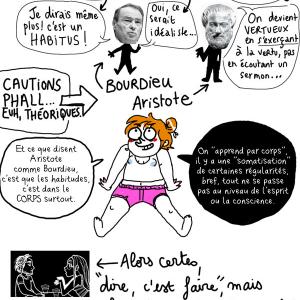 Je dirais même
plus! c'est un
HABITUS!
Oui, ce
serait
idéaliste...
On devient
VERTUEUX
en s'exerçant
à la vertu, pas
en écoutant un
sermon...
CAUTIONS
PHALL...
EUH, THÉORIQUES!
BOURDIEU
Aristote
Et ce que disent
Aristote
comme Bourdieu,
c'est que les habitudes,
c'est dans le
CORPS surtout.
On "apprend par corps",
il y a une "somatisation"
de certaines régularités,
bref, tout ne se passe
pas au niveau de l'esprit
ou la conscience.
Alors certes,
"dire, c'est faire", mais